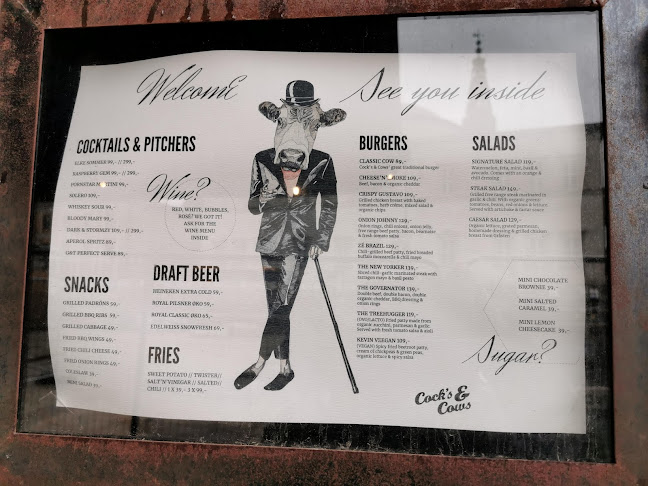 WelcomE
See you inside
COCKTAILS & PITCHERS
ELEX SOMMER 99,- // 299,-
RASPBERRY GEM 99,- // 299,-
PORNSTAR MARTINI 99,-
SOLERO 109,-
WHISKEY SOUR 99,-
BLOODY MARY 99,-
DARK & STORMZY 109,- // 299,-
APEROL SPRITZ 89,-
G&T PERFECT SERVE 89,-
Wine?
RED, WHITE, BUBBLES,
ROSÉ? WE GOT IT!
ASK FOR THE
WINE MENU
INSIDE
SNACKS
GRILLED PADRÓNS 59,-
GRILLED BBQ RIBS 59,-
GRILLED CABBAGE 49,-
FRIED BBQ WINGS 49,-
FRIED CHILI CHEESE 49,-
FRIED ONION RINGS 49,-
COLESLAW
MINI SALAD
DRAFT BEER
HEINEKEN EXTRA COLD 59,-
ROYAL PILSNER ØKO 59,-
ROYAL CLASSIC ØKO 65,-
EDELWEISS SNOWFRESH 69,-
FRIES
SWEET POTATO // TWISTER//
SALT'N'VINEGAR // SALTED//
CHILI // 1 X 39,- 3 X 99,-
BURGERS
CLASSIC COW 89,-
Cock's & Cows' great traditional burger
CHEESE'N' MORE 109,-
Beef, bacon & organic cheddar
CRISPY GUSTAVO 109,-
Grilled chicken breast with baked
tomatoes, herb crème, mixed salad &
organic chips
ONION JOHNNY 119,-
Onion rings, chili onions, onion jelly,
free range beef patty, bacon, lournaise
& fresh tomato salsa
ZÉ BRAZIL 129,-
Chili-grilled beef patty, fried breaded
buffalo mozzarella & chili mayo
THE NEW YORKER 139,-
Sliced chili-garlic marinated steak with
tarragon mayo & basil pesto
THE GOVERNATOR 139,-
Double beef, double bacon, double
organic cheddar, BBQ dressing &
onion rings
THE TREEHUGGER 119,-
(OVO/LACTO) Fried patty made from
organic zucchini, parmesan & garlic.
Served with fresh tomato salsa & aioli
KEVIN VEEGAN 109,-
(VEGAN) Spicy fried beetroot patty,
cream of chickpeas & green peas,
organic lettuce & spicy salsa
SALADS
SIGNATURE SALAD 119,-
Watermelon, feta, mint, basil &
avocado. Comes with an orange &
chili dressing
STEAK SALAD 149,-
Grilled free range steak marinated in
garlic & chili. With organic green
tomatoes, beans, red onions & lettuce.
Served with artichoke & tartar sauce
CAESAR SALAD 129,-
Organic lettuce, grated parmesan,
homemade dressing & grilled chicken
breast
MINI CHOCOLATE
BROWNIE 39,-
MINI SALTED
CARAMEL 39,-
MINI LEMON
CHEESECAKE 39,-
Sugar?
Cock's &
Cows